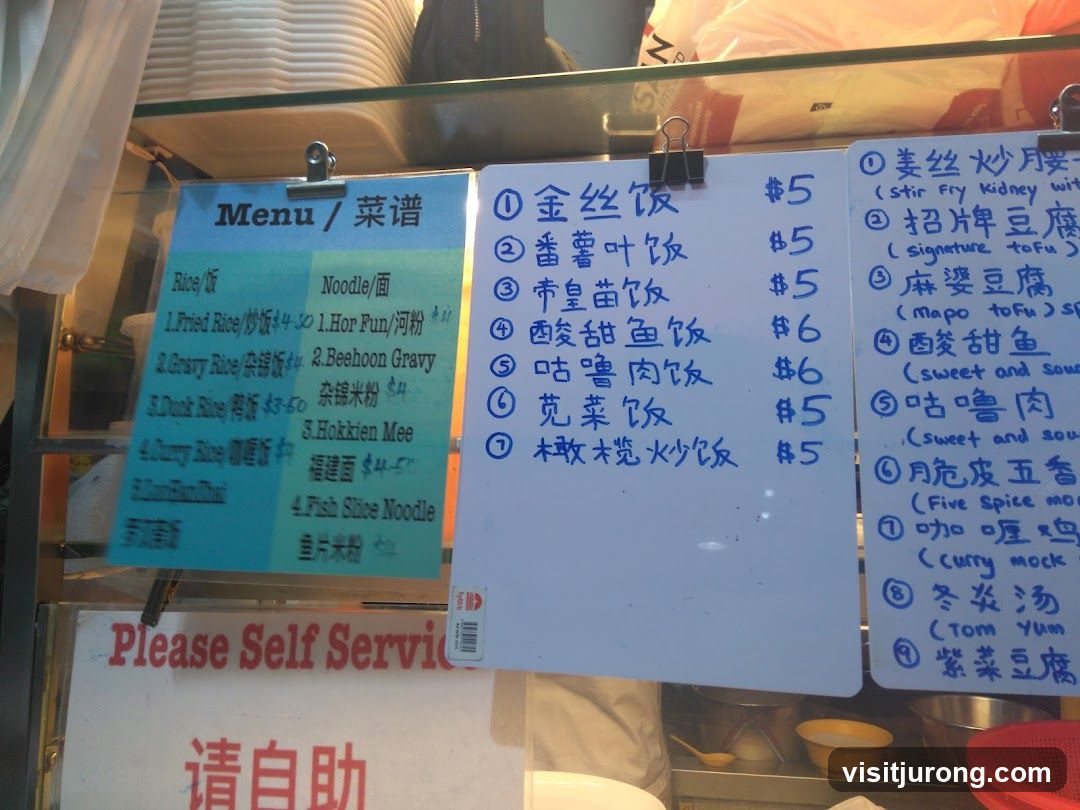 Menu / 菜谱
Rice/饭
1.Fried Rice/炒饭 $4-50
2.Gravy Rice/杂锦饭 $4
3.Duck Rice/鸭饭 $3-50
4.Curry Rice/咖喱饭
5.LuoHanZhai
罗汉斋饭
Noodle/面
1.Hor Fun/河粉 $4
2.Beehoon Gravy
杂锦米粉 $4
3.Hokkien Mee
福建面 $4-50
4.Fish Slice Noodle
鱼片米粉 $4
Please Self Service
请自助
① 金丝饭 $5
② 番薯叶饭 $5
③ 帝皇苗饭 $5
④ 酸甜鱼饭 $6
⑤ 咕噜肉饭 $6
⑥ 苋菜饭 $5
⑦ 橄榄炒饭 $5
① 姜丝炒腰
(stir Fry Kidney wit
② 招牌豆腐
(signature toFu)
③ 麻婆豆腐
(mapo toFu) sp
④ 酸甜鱼
(sweet and sou
⑤ 咕噜肉
(sweet and sou
⑥ 脆皮五香
(Five spice mo
⑦ 咖喱鸡
(curry mock
⑧ 冬炎汤
(Tom Yum
⑨ 紫菜豆腐
visitjurong.com